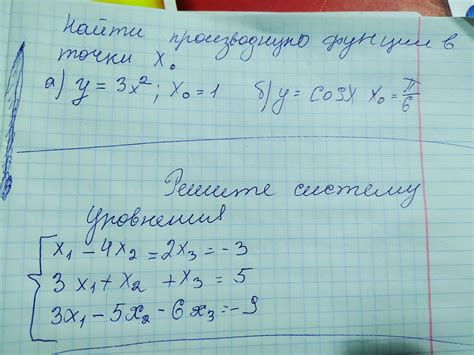 Найти производную функции в
точки x₀
а) y = 3x²; x₀ = 1 б) y = cosx x₀ = π/6
Решите систему
Уровнения
x₁ - 4x₂ = 2x₃ = -3
3x₁ + x₂ + x₃ = 5
3x₁ - 5x₂ - 6x₃ = -9